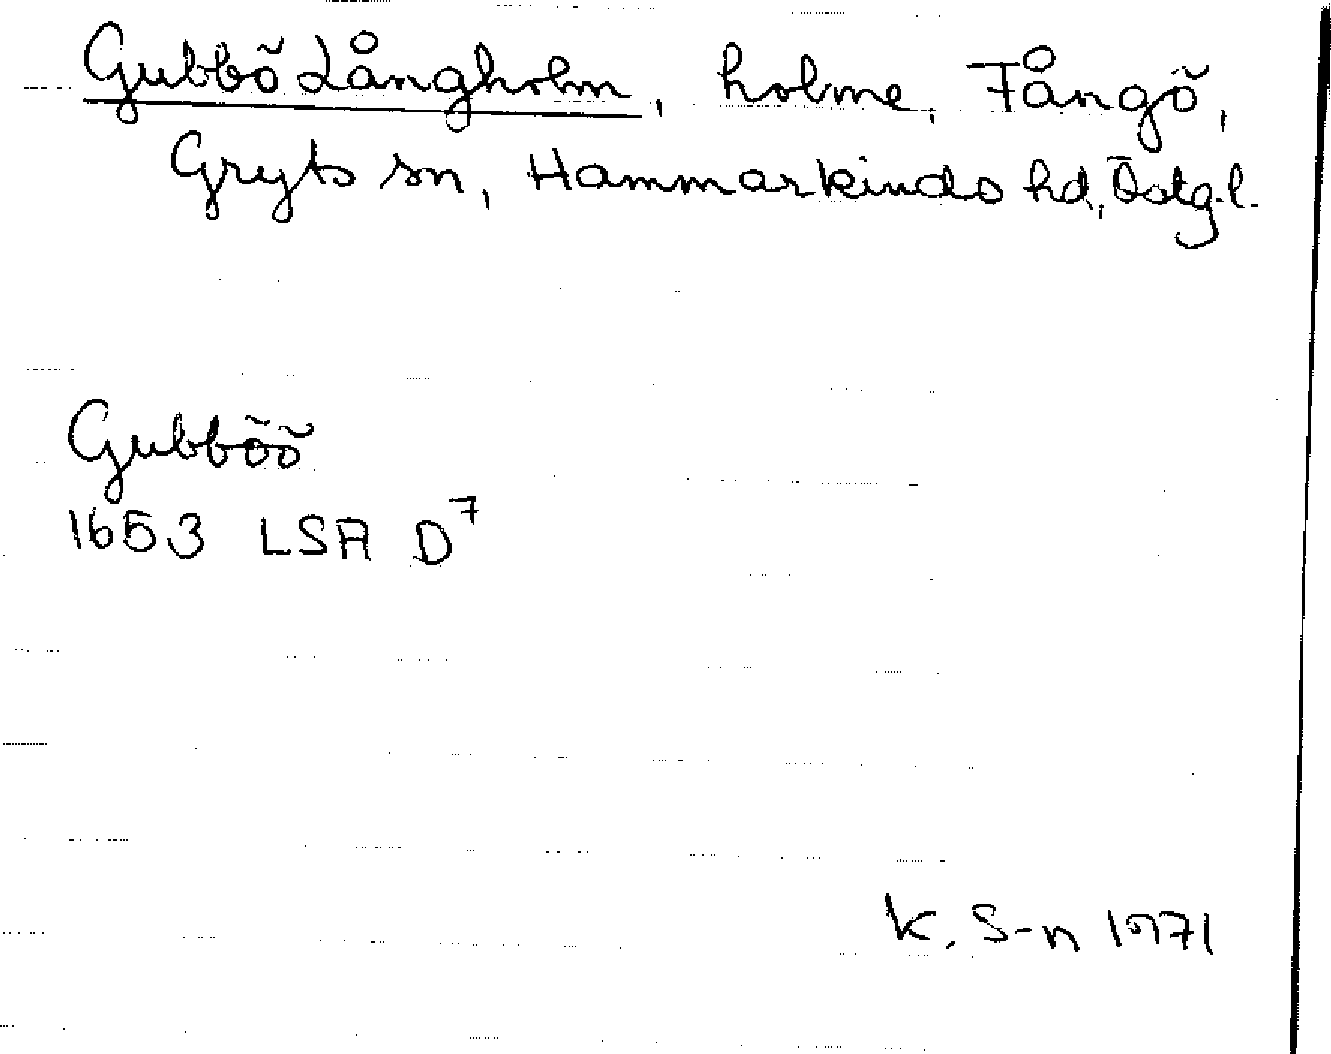 Gubbö Långholm, holme, Fångö,
Gryts sn, Hammarkinds hd, Östg.l.
Gubböö
1653 LSA D⁷
K. S-n 1971